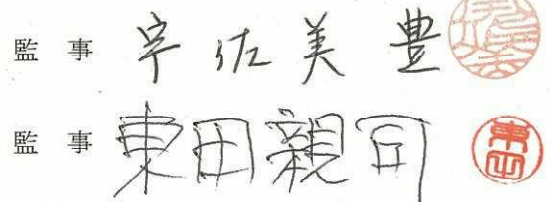 監事 宇佐美豊
監事 東田親司